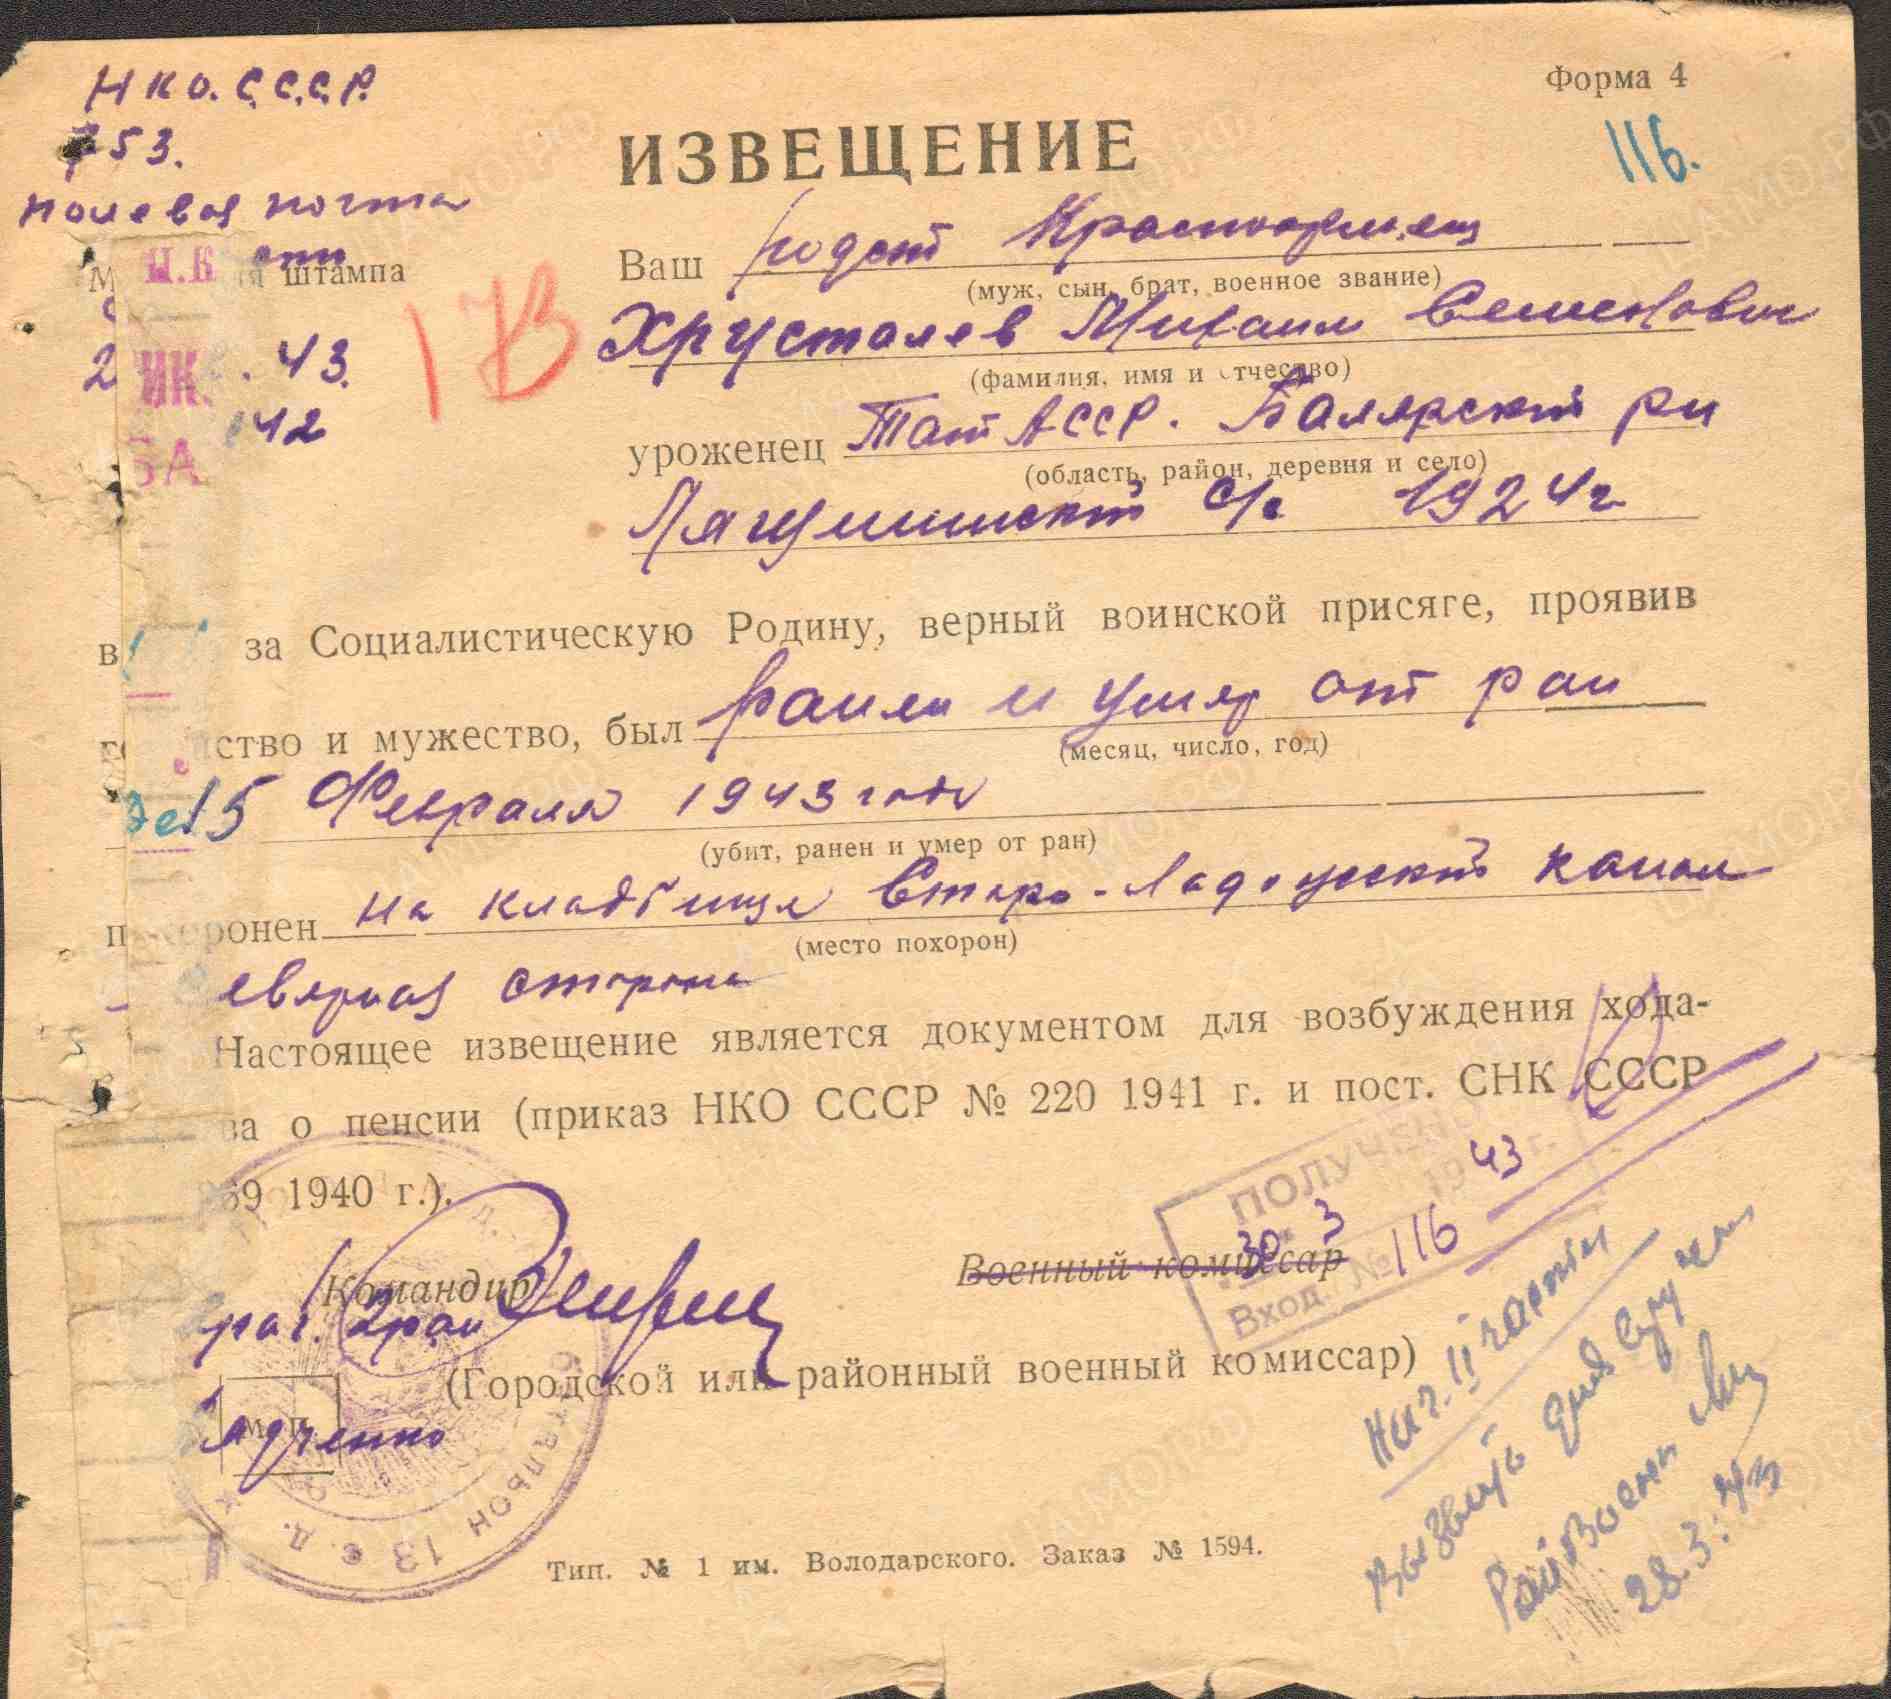 Форма 4
116.
Н К О. С.С.С.Р.
753.
полевая почта
штампа
43.
42
173
ИЗВЕЩЕНИЕ
Ваш Красноармеец
(муж, сын, брат, военное звание)
Хрусталев Михаил Семенович
(фамилия, имя и отчество)
уроженец Тат АССР. Балярский рн
(область, район, деревня и село)
с/с 1924г
в за Социалистическую Родину, верный воинской присяге, проявив
ство и мужество, был ранен и умер от ран
(месяц, число, год)
15 Февраля 1943 года
(убит, ранен и умер от ран)
похоронен на кладбище Старо-Ладожский канал
(место похорон)
еверная сторона
Настоящее извещение является документом для возбуждения хода-
ва о пенсии (приказ НКО СССР № 220 1941 г. и пост. СНК СССР
59 1940 г.).
ПОЛУЧЕНО
30 3 1943 г.
Вход. № 116
Командир
Военный комиссар
(Городской или районный военный комиссар)
м. п.
БАТАЛЬОН 13 с. д.
Нач. II части
вызвать для вручения
Райвоенком
28.3.43
Тип. № 1 им. Володарского. Заказ № 1594.